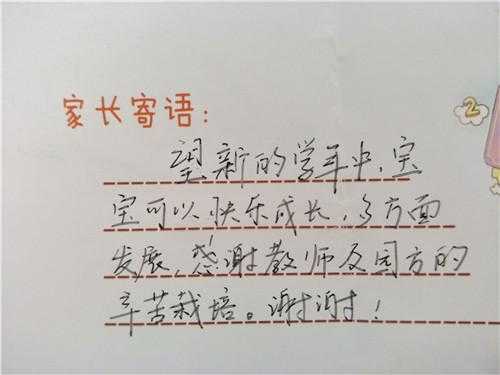 家长寄语:
2
望新的学年中,宝
宝可以快乐成长,多方面
发展,感谢教师及园方的
辛苦栽培。谢谢!